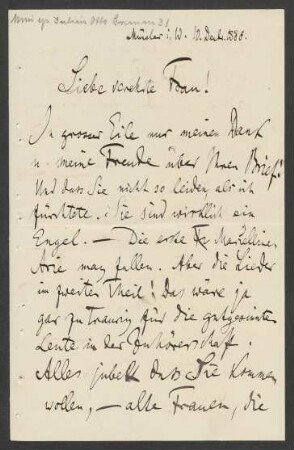 Münster i. W. 10. Decbr. 1880.
Liebe verehrte Frau!
In grosser Eile nur meinen Dank
u. meine Freude über Ihren Brief!
Und dass Sie nicht so leiden als ich
fürchtete. Sie sind wirklich ein
Engel. — Die erste Marzelline
Arie mag fallen. Aber die Lieder
im zweiten Theil! Das wäre ja
gar zu traurig für die gutgesinnten
Leute in der Zuhörerschaft.
Alles jubelt dass Sie kommen
wollen, — alte Frauen, die